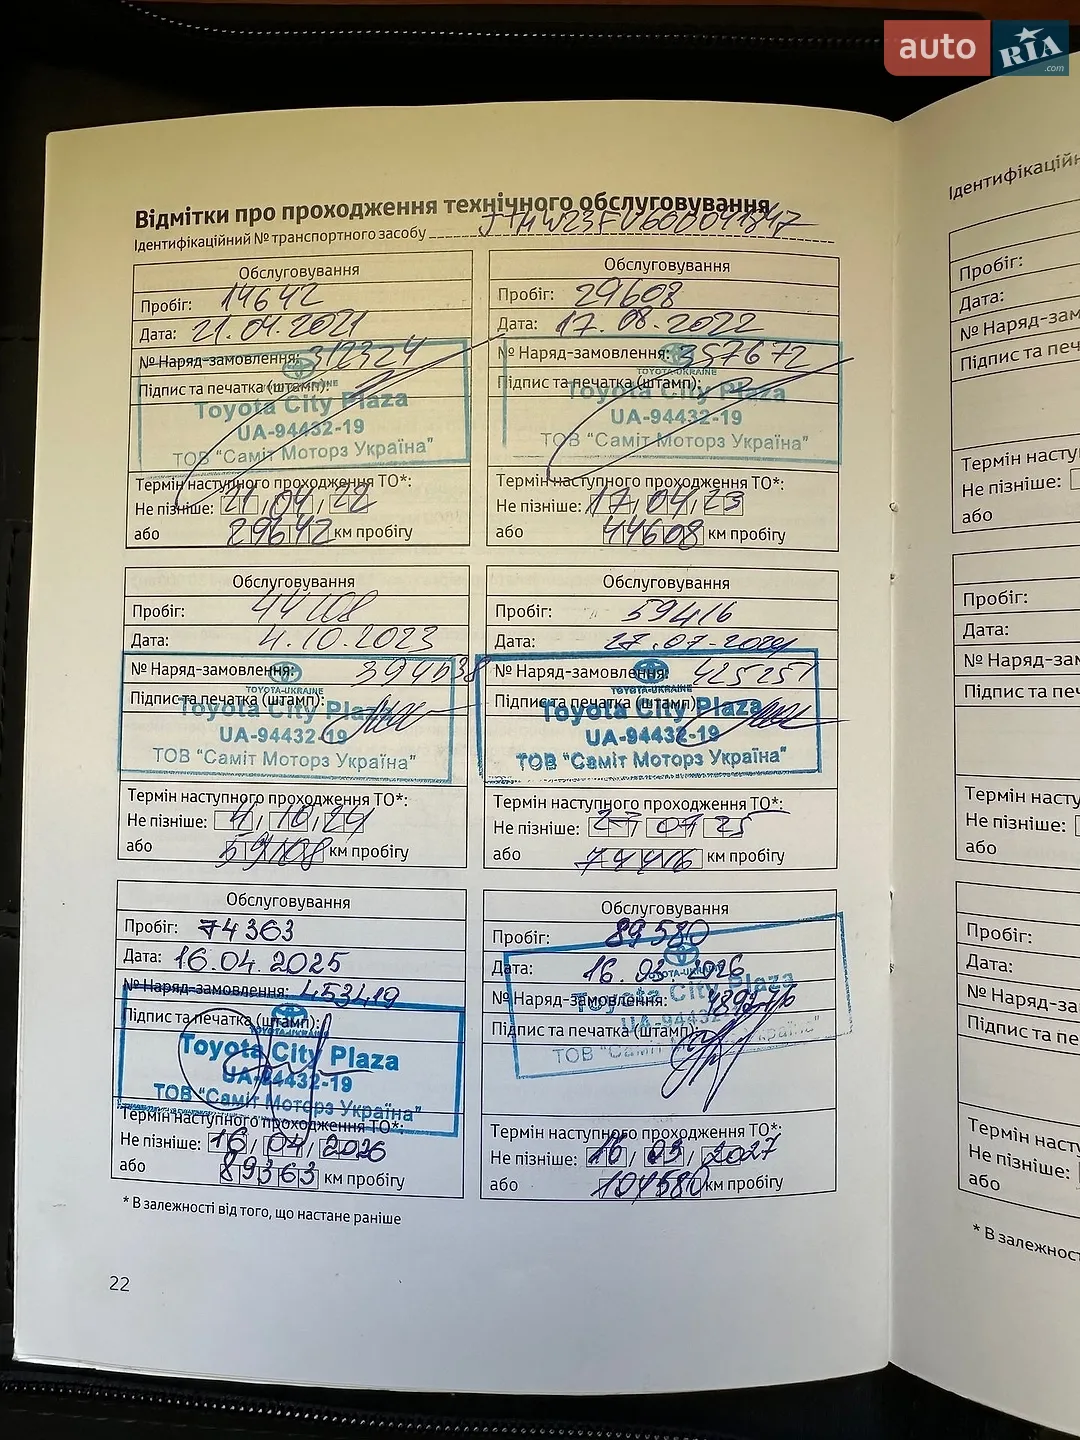 auto RIA .com
Відмітки про проходження технічного обслуговування
Ідентифікаційний № транспортного засобу
Обслуговування
Пробіг: 14642
Дата: 21.04.2021
№ Наряд-замовлення: 312324
TOYOTA-UKRAINE
Підпис та печатка (штамп):
Toyota City Plaza
UA-94432-19
ТОВ "Саміт Моторз Україна"
Термін наступного проходження ТО*:
Не пізніше: 21, 04, 22
або 29642 км пробігу
Обслуговування
Пробіг: 29608
Дата: 17.08.2022
№ Наряд-замовлення: 357672
TOYOTA-UKRAINE
Підпис та печатка (штамп):
Toyota City Plaza
UA-94432-19
ТОВ "Саміт Моторз Україна"
Термін наступного проходження ТО*:
Не пізніше: 17, 04, 23
або 44608 км пробігу
Обслуговування
Пробіг: 44108
Дата: 4.10.2023
№ Наряд-замовлення: 394638
TOYOTA-UKRAINE
Підпис та печатка (штамп):
Toyota City Plaza
UA-94432-19
ТОВ "Саміт Моторз Україна"
Термін наступного проходження ТО*:
Не пізніше: 4, 10, 24
або 59108 км пробігу
Обслуговування
Пробіг: 59416
Дата: 27.07.2024
№ Наряд-замовлення: 425251
TOYOTA-UKRAINE
Підпис та печатка (штамп):
Toyota City Plaza
UA-94432-19
ТОВ "Саміт Моторз Україна"
Термін наступного проходження ТО*:
Не пізніше: 27, 07 25
або 74416 км пробігу
Обслуговування
Пробіг: 74363
Дата: 16.04.2025
№ Наряд-замовлення: 453419
Підпис та печатка (штамп):
TOYOTA-UKRAINE
Toyota City Plaza
UA-94432-19
ТОВ "Саміт Моторз Україна"
Термін наступного проходження ТО*:
Не пізніше: 16, 04, 2026
або 89363 км пробігу
Обслуговування
Пробіг: 89580
Дата: 16.03.2026
TOYOTA-UKRAINE
№ Наряд-замовлення:
Toyota City Plaza
Підпис та печатка (штамп):
ТОВ "Саміт Моторз Україна"
Термін наступного проходження ТО*:
Не пізніше: 16, 03, 2027
або 104580 км пробігу
* В залежності від того, що настане раніше
22
Пробіг:
Дата:
№ Наряд-зам
Підпис та печ
Термін насту
Не пізніше:
або
Пробіг:
Дата:
№ Наряд-за
Підпис та пе
Термін наст
Не пізніше:
або
Пробіг:
Дата:
№ Наряд-за
Підпис та пе
Термін наст
Не пізніше:
або
* В залежност